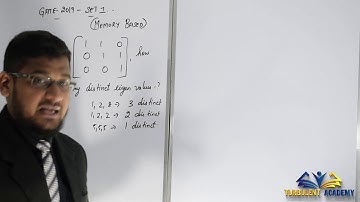 GATE-2019 - SET 1.
(MEMORY BASED)
1 1 0
0 1 1 , how
0 0 1
my distinct eigen values.?
1, 2, 3 → 3 distinct
1, 2, 2 → 2 distinct
5,5,5 → 1 distinct
TURBULENT ACADEMY